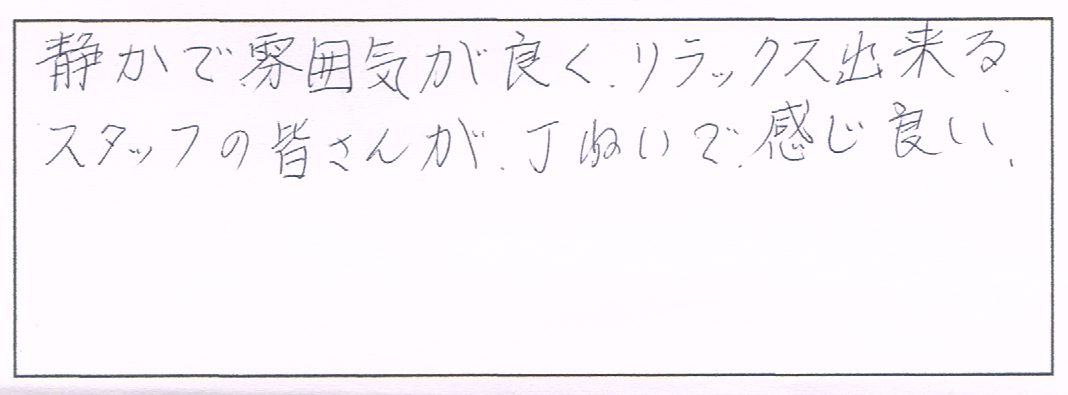 静かで雰囲気が良く、リラックス出来る
スタッフの皆さんが、丁ねいで、感じ良い、